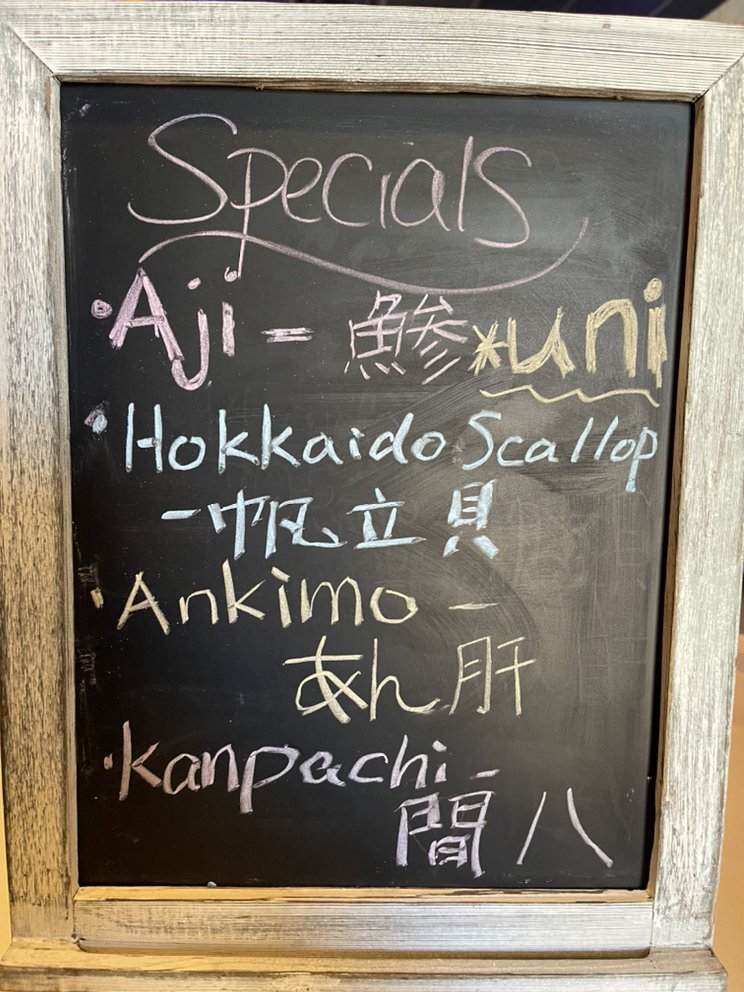 Specials
·Aji - 鯵 *uni
·Hokkaido Scallop
- 帆立貝
·Ankimo -
あん肝
·Kanpachi -
間八